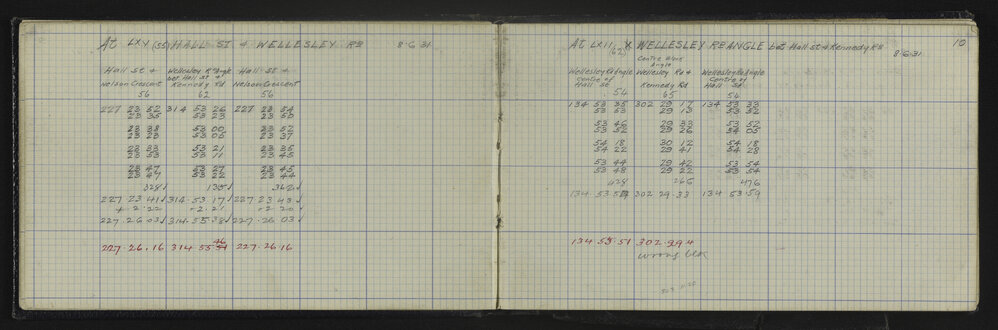 At LXV (55) HALL ST & WELLESLEY RD 8·6·31
Hall St & Wellesley Rd Angle Hall St &
Nelson Crescent bet Hall St & Nelson Crescent
Kennedy Rd
56 62 56
227 23 52 314 53 26 227 23 54
23 35 53 23 23 50
23 38 53 00 23 52
23 23 53 05 23 37
23 33 53 21 23 35
23 53 53 11 23 45
23 47 53 27 23 45
23 47 53 22 23 44
328 135 362
227·23·41 314·53·17 227·23·43
+2·22 2·21 2·20
227·26·03 314·55·38 227·26·03
227·26·16 314·55 46 227·26·16
At LXII (62) WELLESLEY RD ANGLE bet Hall St & Kennedy Rd 8·6·31 10
Centre Work
Angle
Wellesley Rd Angle Wellesley Rd & Wellesley Rd Angle
Centre of Kennedy Rd Centre of
Hall St Hall St
54 65 54
134 53 35 302 29 17 134 53 33
53 53 29 13 53 52
53 46 29 33 53 52
53 52 29 26 54 05
54 18 30 12 54 18
54 22 29 41 54 28
53 44 29 42 53 54
53 48 29 22 53 54
428 266 476
134·53·54 302·29·33 134·53·59
134·55·51 302·29 4
wrong